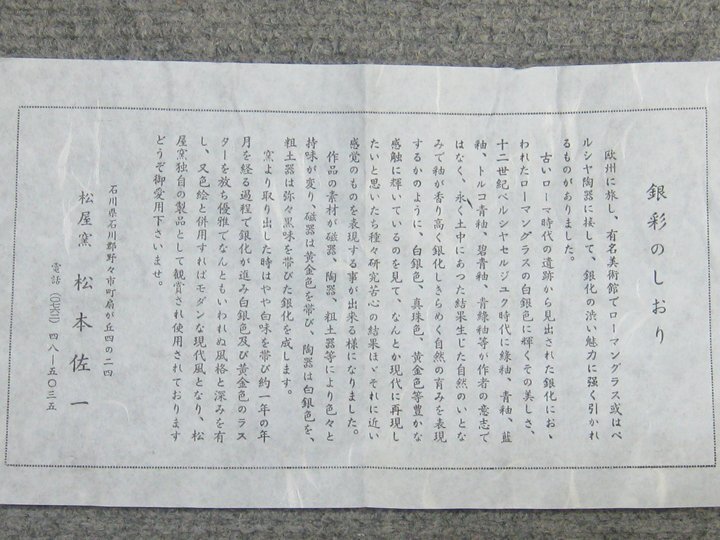 銀彩のしおり
欧州に旅し、有名美術館でローマングラス或はペ
ルシヤ陶器に接して、銀化の渋い魅力に強く引かれ
るものがありました。
古いローマ時代の遺跡から見出された銀化にお、
われたローマングラスの白銀色に輝くその美しさ、
十二世紀ペルシヤセルジユク時代に緑釉、青釉、藍
釉、トルコ青釉、碧青釉、青緑釉等が作者の意志で
はなく、永く土中にあつた結果生じた自然のいとな
みで釉が香り高く銀化しきらめく自然の育みを表現
するかのように、白銀色、真珠色、黄金色等豊かな
感触に輝いているのを見て、なんとか現代に再現し
たいと思いたち種々研究苦心の結果ほゞそれに近い
感覚のものを表現する事が出来る様になりました。
作品の素材が磁器、陶器、粗土器等により色々と
持味が変り、磁器は黄金色を帯び、陶器は白銀色を、
粗土器は弥々黒味を帯びた銀化を成します。
窯より取り出した時はやや白味を帯び約一年の年
月を経る過程で銀化が進み白銀色及び黄金色のラス
ターを放ち優雅でなんともいわれぬ風格と深みを有
し、又色絵と併用すればモダンな現代風となり、松
屋窯独自の製品として観賞され使用されております
どうぞ御愛用下さいませ。
石川県石川郡野々市町扇が丘四の二四
松屋窯 松本佐一
電話 四八―五〇三五